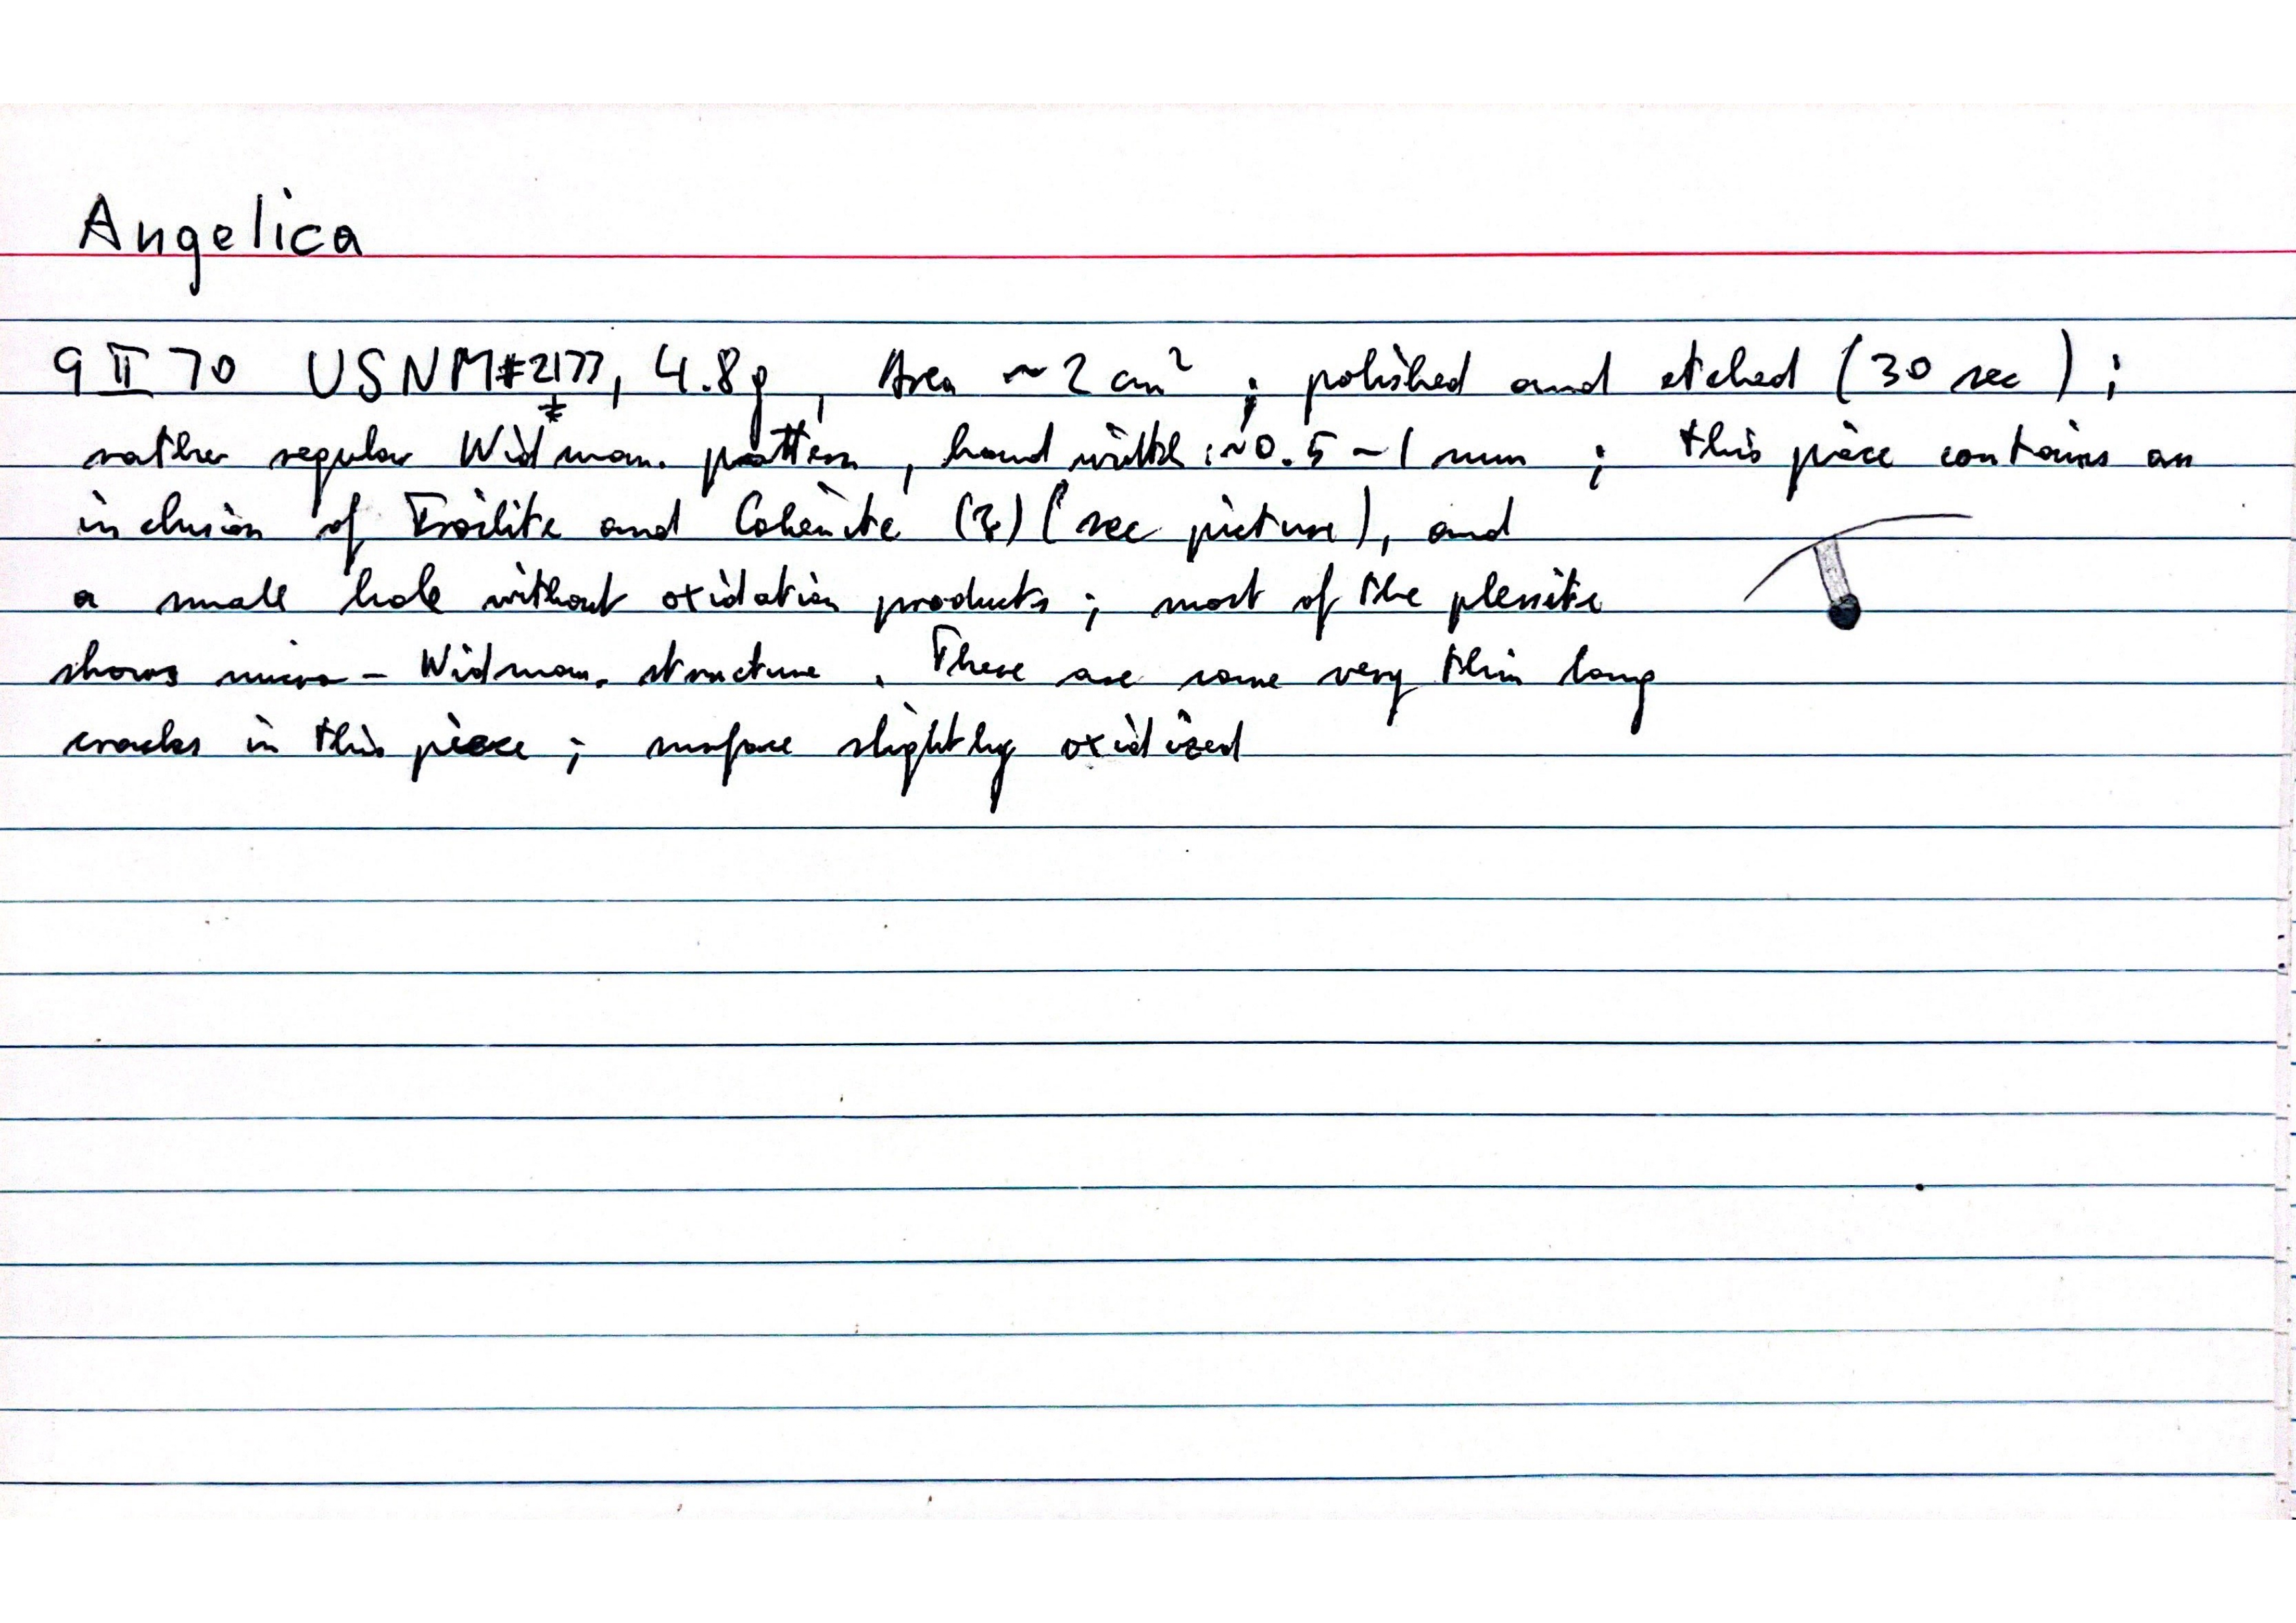 Angelica
9 II 70 USNM #2177, 4.8g, Area ~2 cm² ; polished and etched (30 sec) ;
rather regular Widman. pattern, band width: ~0.5 ~ 1 mm ; this piece contains an
inclusion of Troilite and Cohenite (?) (see picture), and
a small hole without oxidation products ; most of the plessite
shows micro - Widman. structure . There are some very thin long
cracks in this piece ; surface slightly oxidized